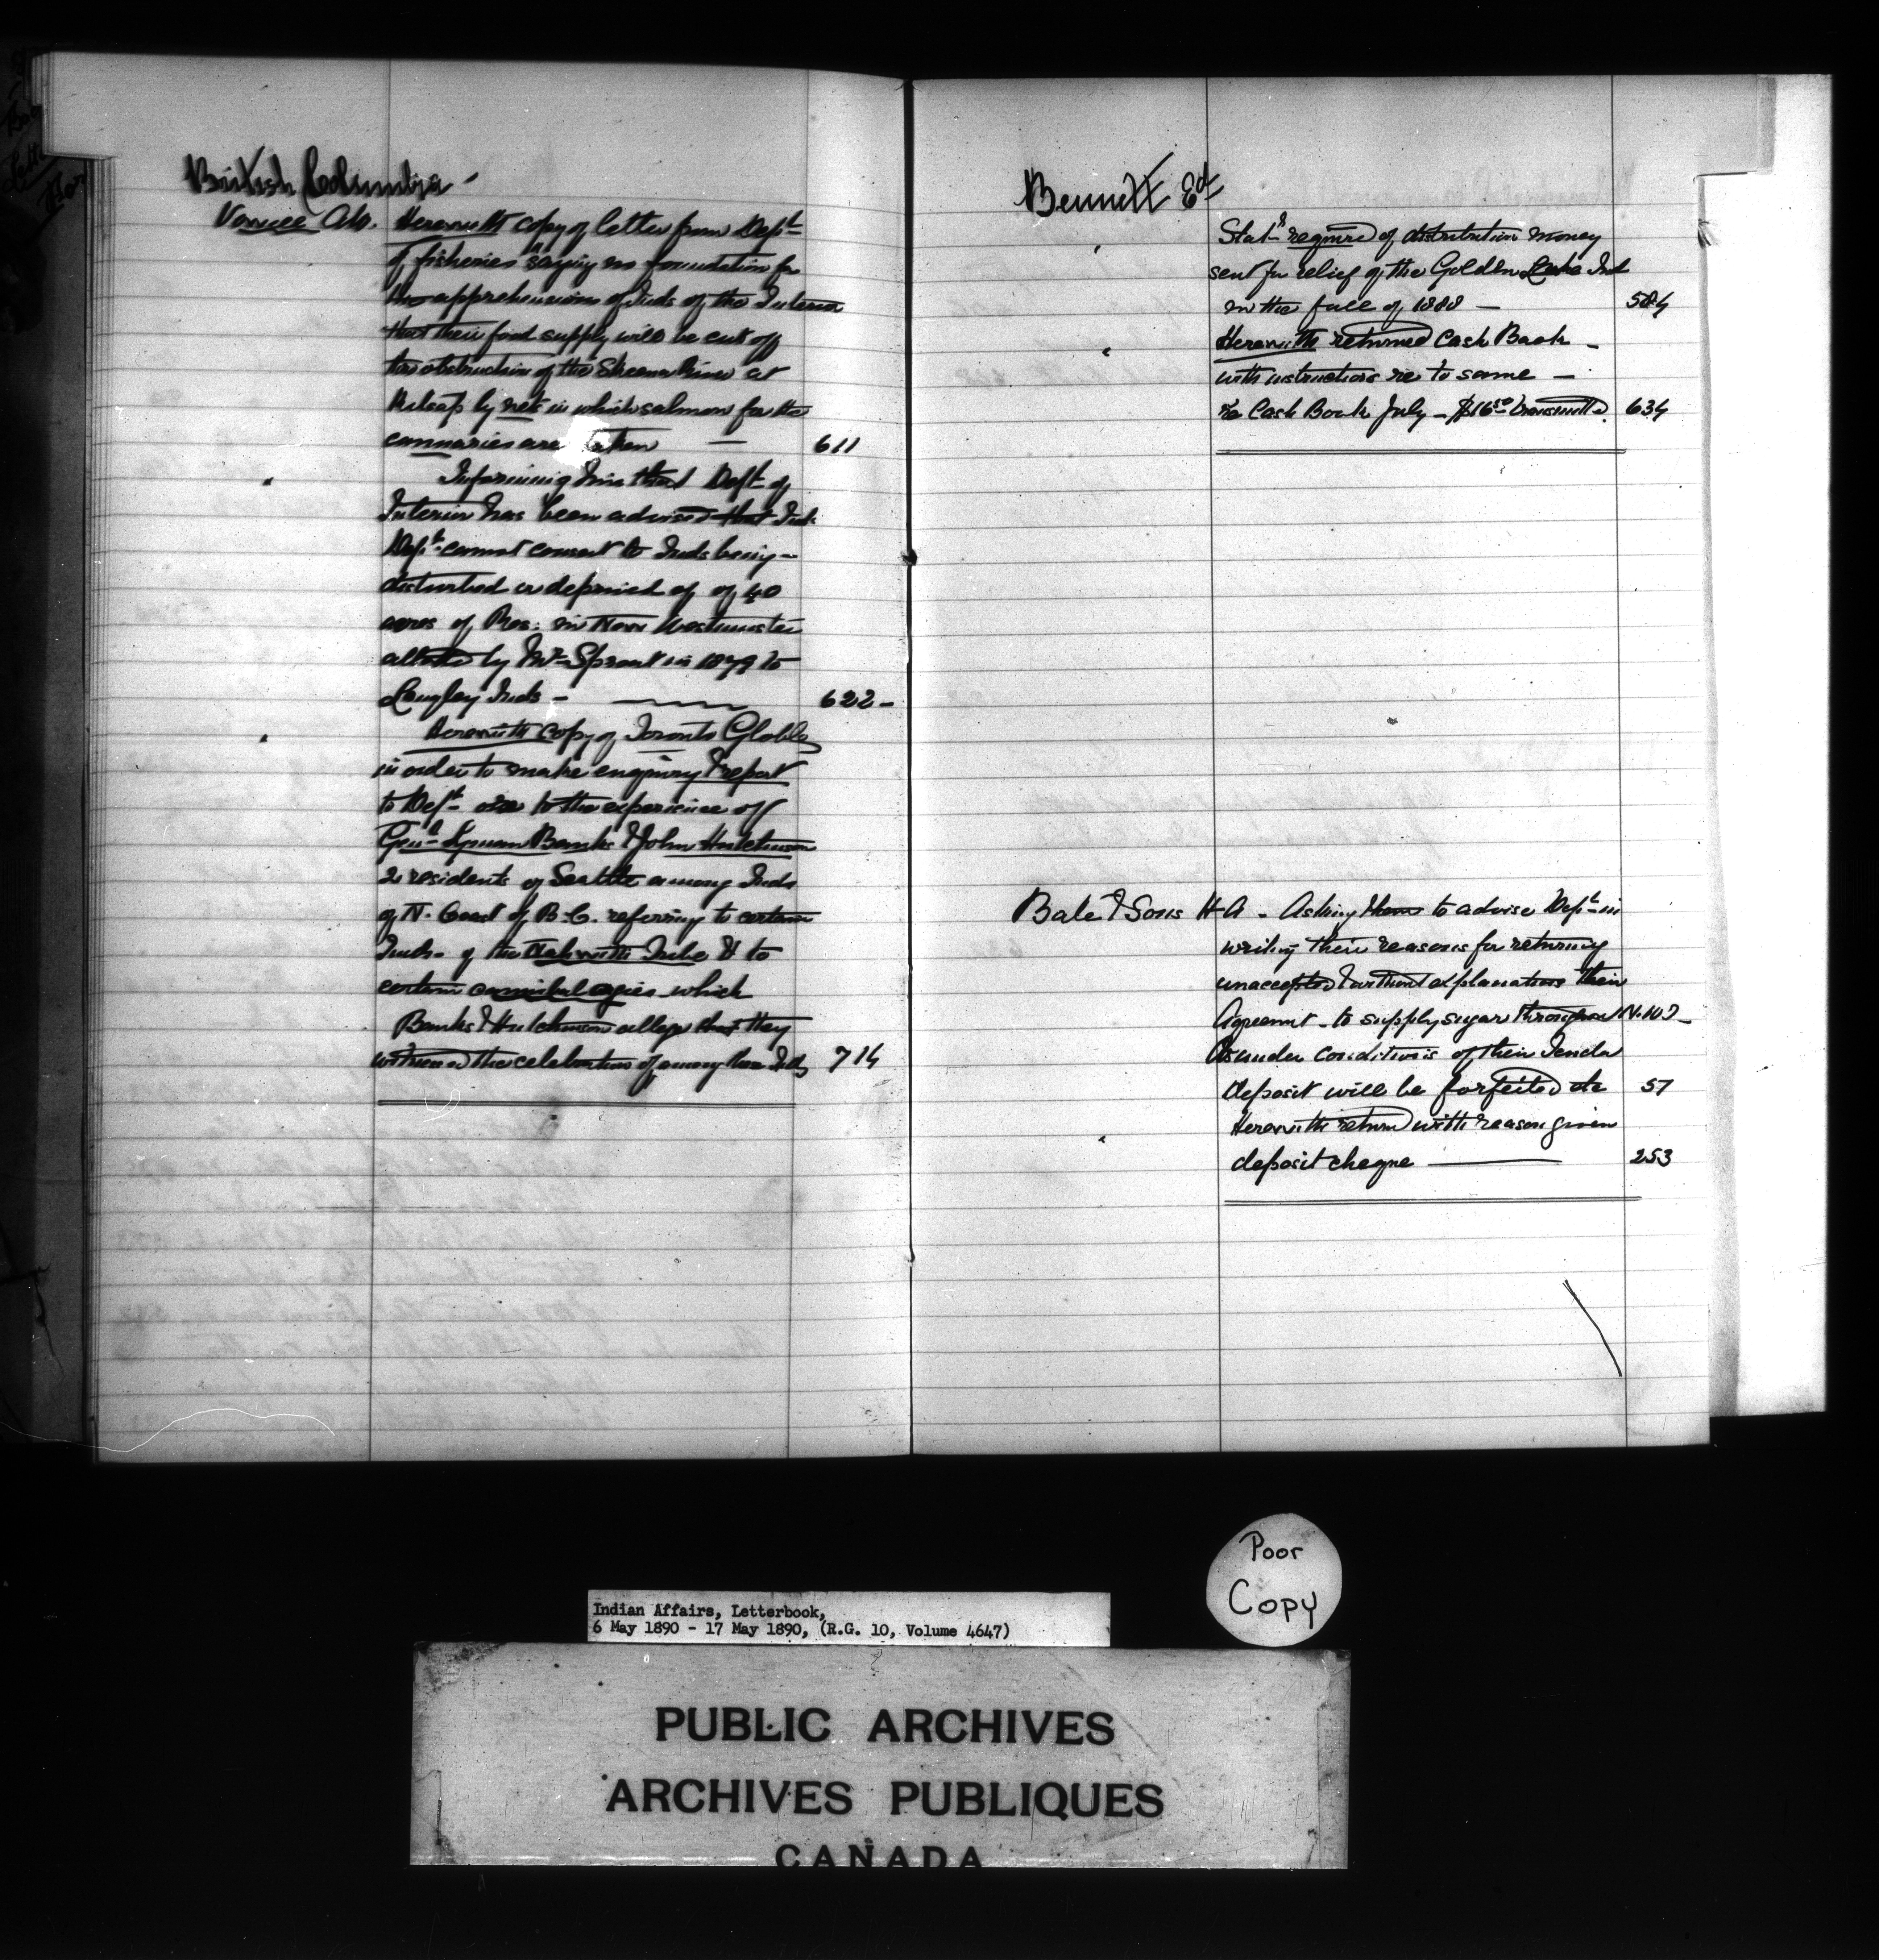 British Columbia -
Vowell A.W. Herewith copy of letter from Dept
of fisheries saying no foundation for
the apprehensions of Inds of the Interior
that their food supply will be cut off
the obstruction of the Skeena River at
by nets in which salmon for the
cannaries are taken — 611
" Informing him that Dept of
Interior has been advised that Ind.
Dept cannot consent to Inds being -
disturbed or deprived of of 40
acres of Res: in New Westminster
allotted by Mr Sproat in 1879 to
Langley Inds - 622 -
" Herewith copy of Toronto Globe
in order to make enquiry & report
to Dept as to the experience of
Genl Lyman Banks & John Hutchinson
2 residents of Seattle among Inds
of N. Coast of B.C. referring to certain
Inds. of the Tribe & to
certain cannibal orgies which
Banks & Hutchinson allege that they
witnessed the celebration of among these Inds 714
Bennett Ed
" Statt required of distribution money
sent for relief of the Golden Lake Ind
in the fall of 1888 — 584
" Herewith returned Cash Book -
with instructions re to same —
re Cash Book July - $16.50 transmitted. 634
Bate & Sons H A - Asking them to advise Dept in
writing their reasons for returning
unaccepted & without explanation their
Agreemnt - to supply sugar throughout N.W.T -
As under conditions of their Tender
deposit will be forfeited &c 57
" Herewith return with reason given
deposit cheque — 253
Poor
Copy
Indian Affairs, Letterbook,
6 May 1890 - 17 May 1890, (R.G. 10, Volume 4647)
PUBLIC ARCHIVES
ARCHIVES PUBLIQUES
CANADA